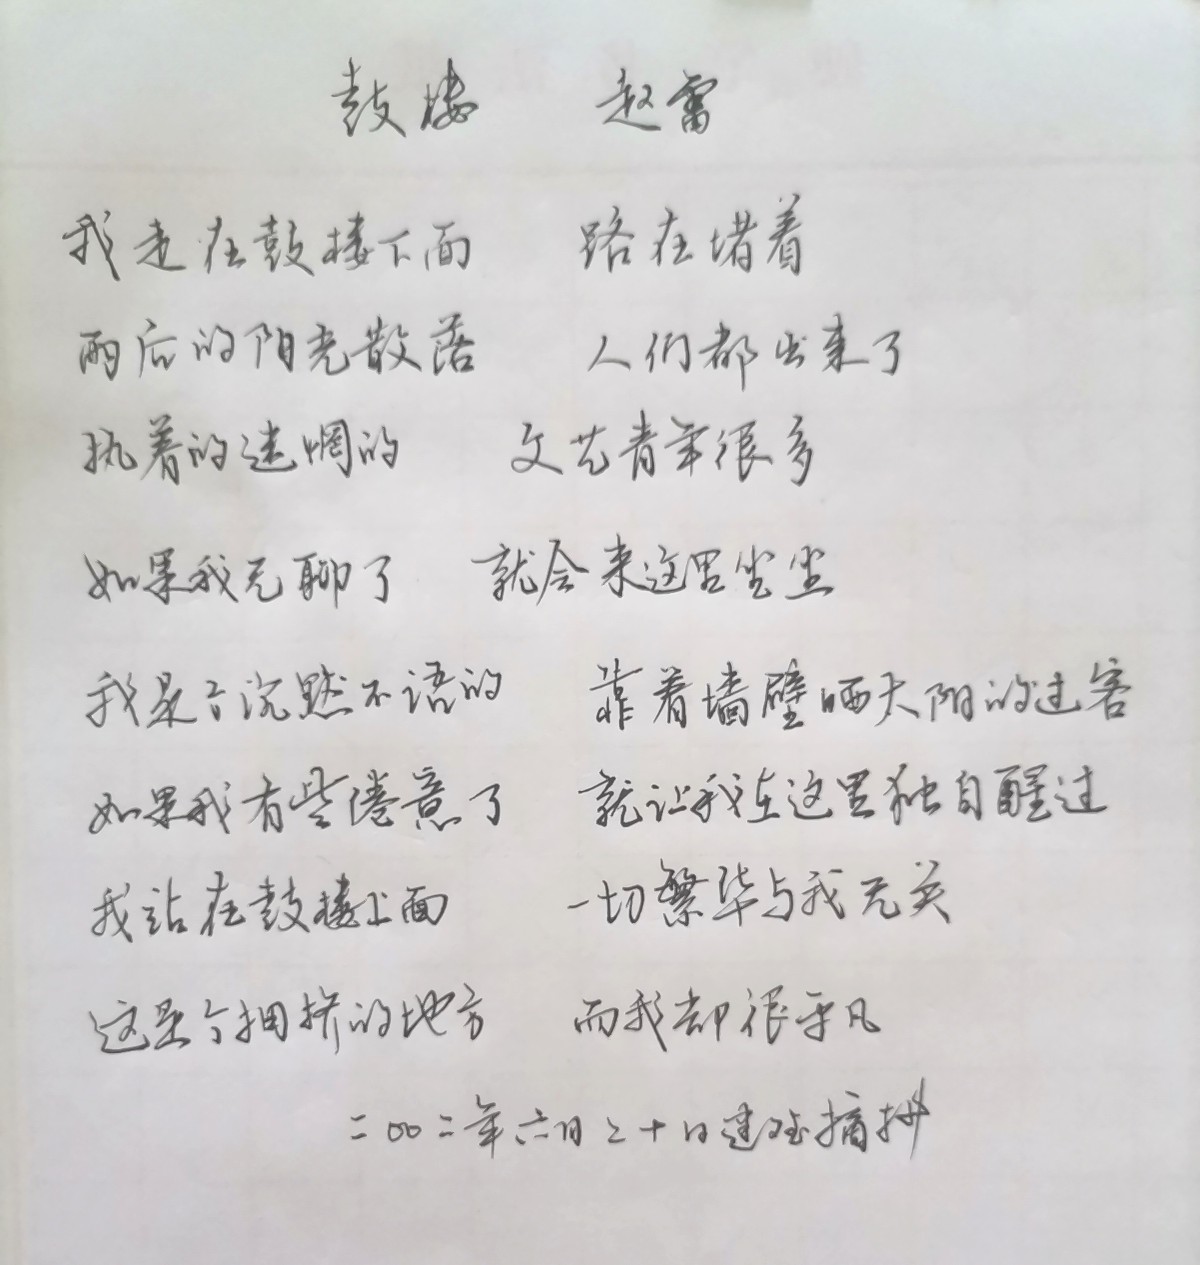 鼓楼 赵雷
我走在鼓楼下面 路在堵着
雨后的阳光散落 人们都出来了
执着的迷惘的 文艺青年很多
如果我无聊了 就会来这里坐坐
我是个沉默不语的 靠着墙壁晒太阳的过客
如果我有些倦意了 就让我在这里独自醒过
我站在鼓楼上面 一切繁华与我无关
这是个拥挤的地方 而我却很平凡
二00二年六月二十日建摘抄